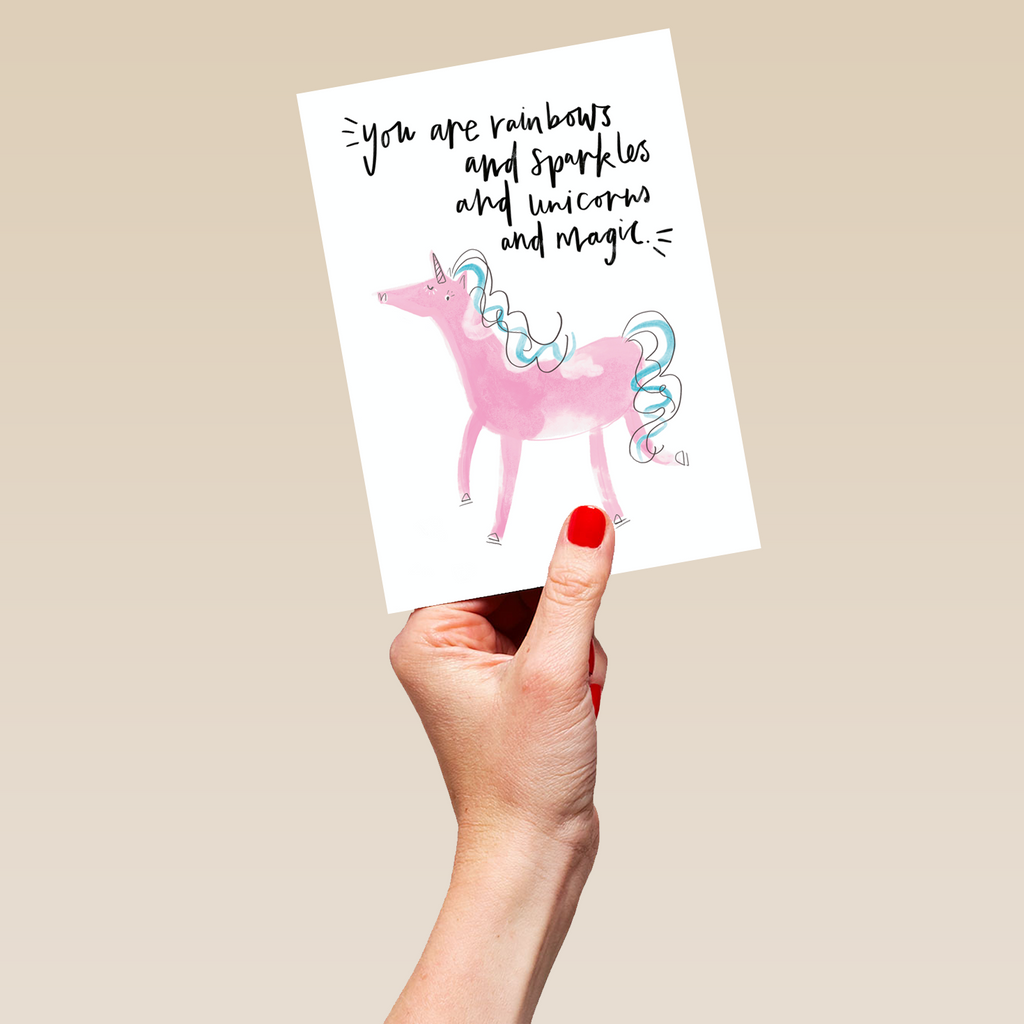 you are rainbows
and sparkles
and unicorns
and magic.